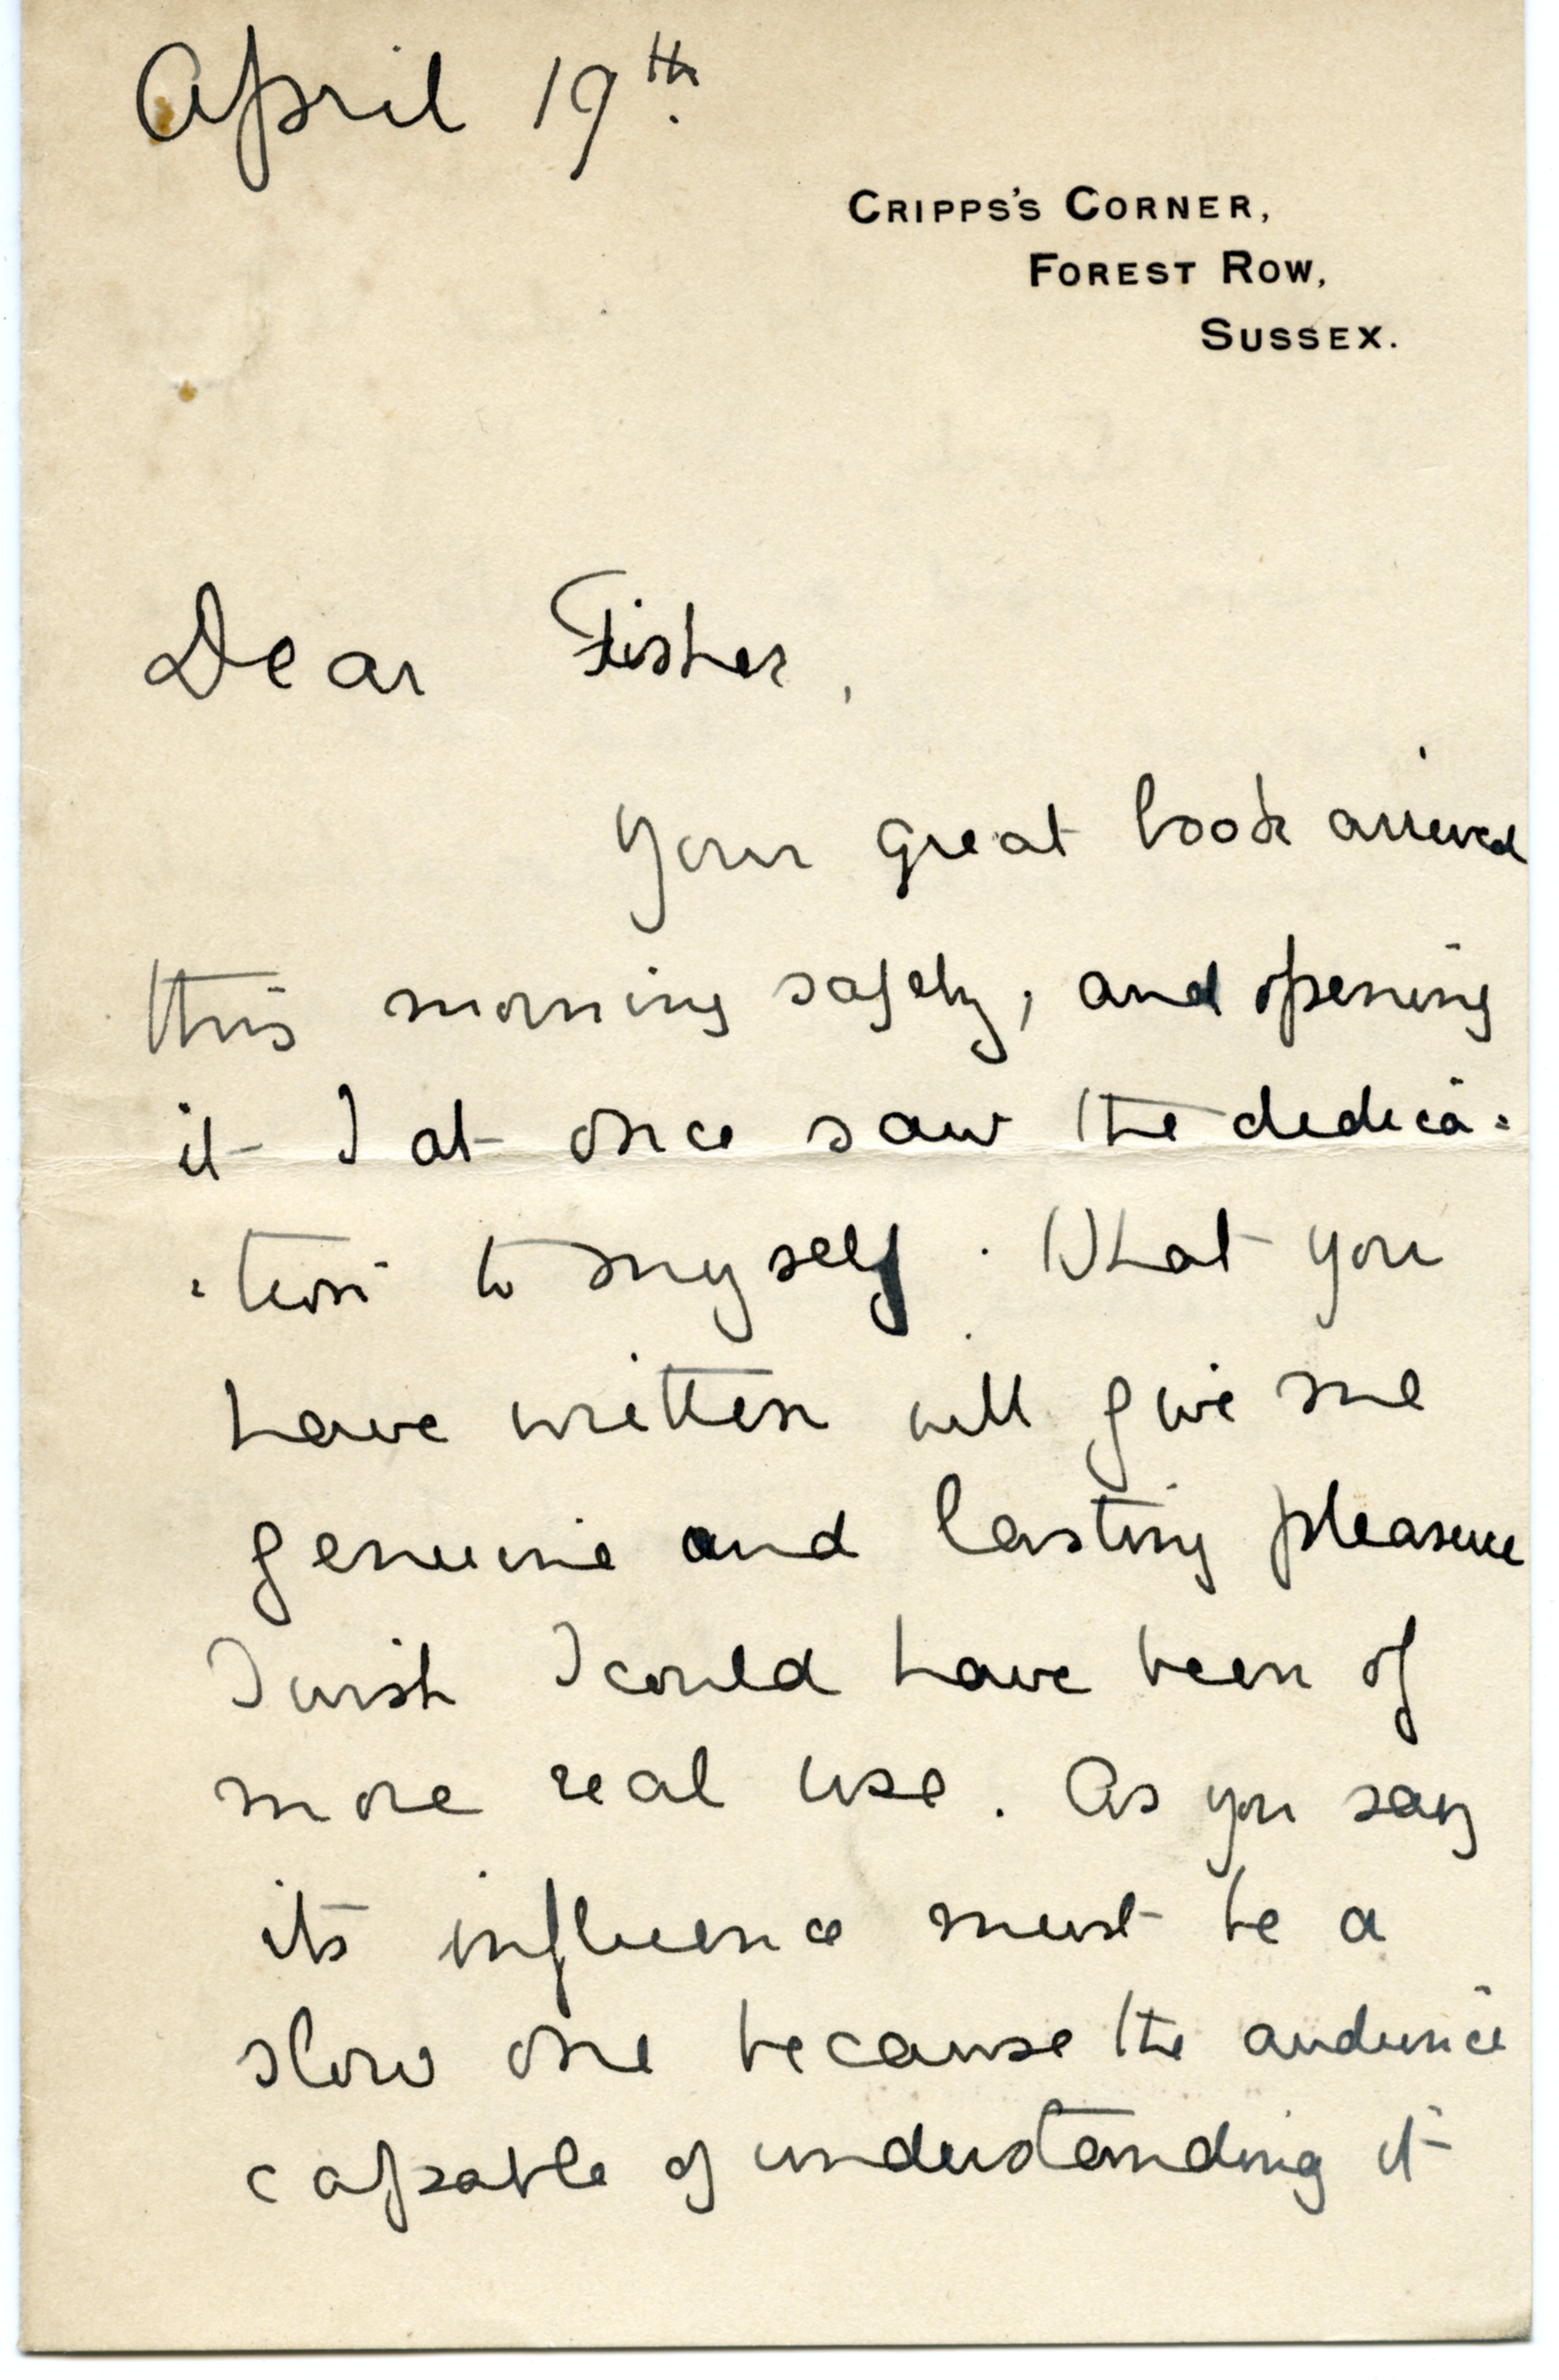 April 19th.
CRIPPS'S CORNER,
FOREST ROW,
SUSSEX.
Dear Fisher,
Your great book arrived
this morning safely, and opening
it I at once saw the dedica=
=tion to myself. What you
have written will give me
genuine and lasting pleasure
I wish I could have been of
more real use. As you say
its influence must be a
slow one because the audience
capable of understanding it